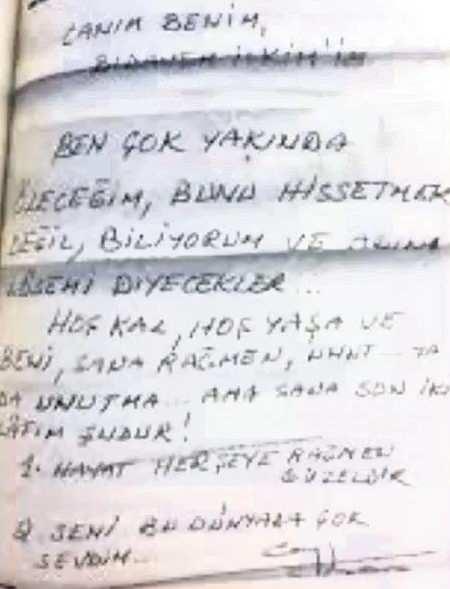 CANIM BENİM,
BİDANEM İLKİM'İM
BEN ÇOK YAKINDA
ÖLECEĞİM, BUNU HİSSETMEK
DEĞİL, BİLİYORUM VE BUNA
LÖSEMİ DİYECEKLER...
HOŞ KAL, HOŞ YAŞA VE
BENİ, SANA RAĞMEN, UNUT... YA
DA UNUTMA... AMA SANA SON İKİ
LÂFIM ŞUDUR!
1. HAYAT HERŞEYE RAĞMEN
GÜZELDİR
2) SENİ BU DÜNYADA ÇOK
SEVDİM...